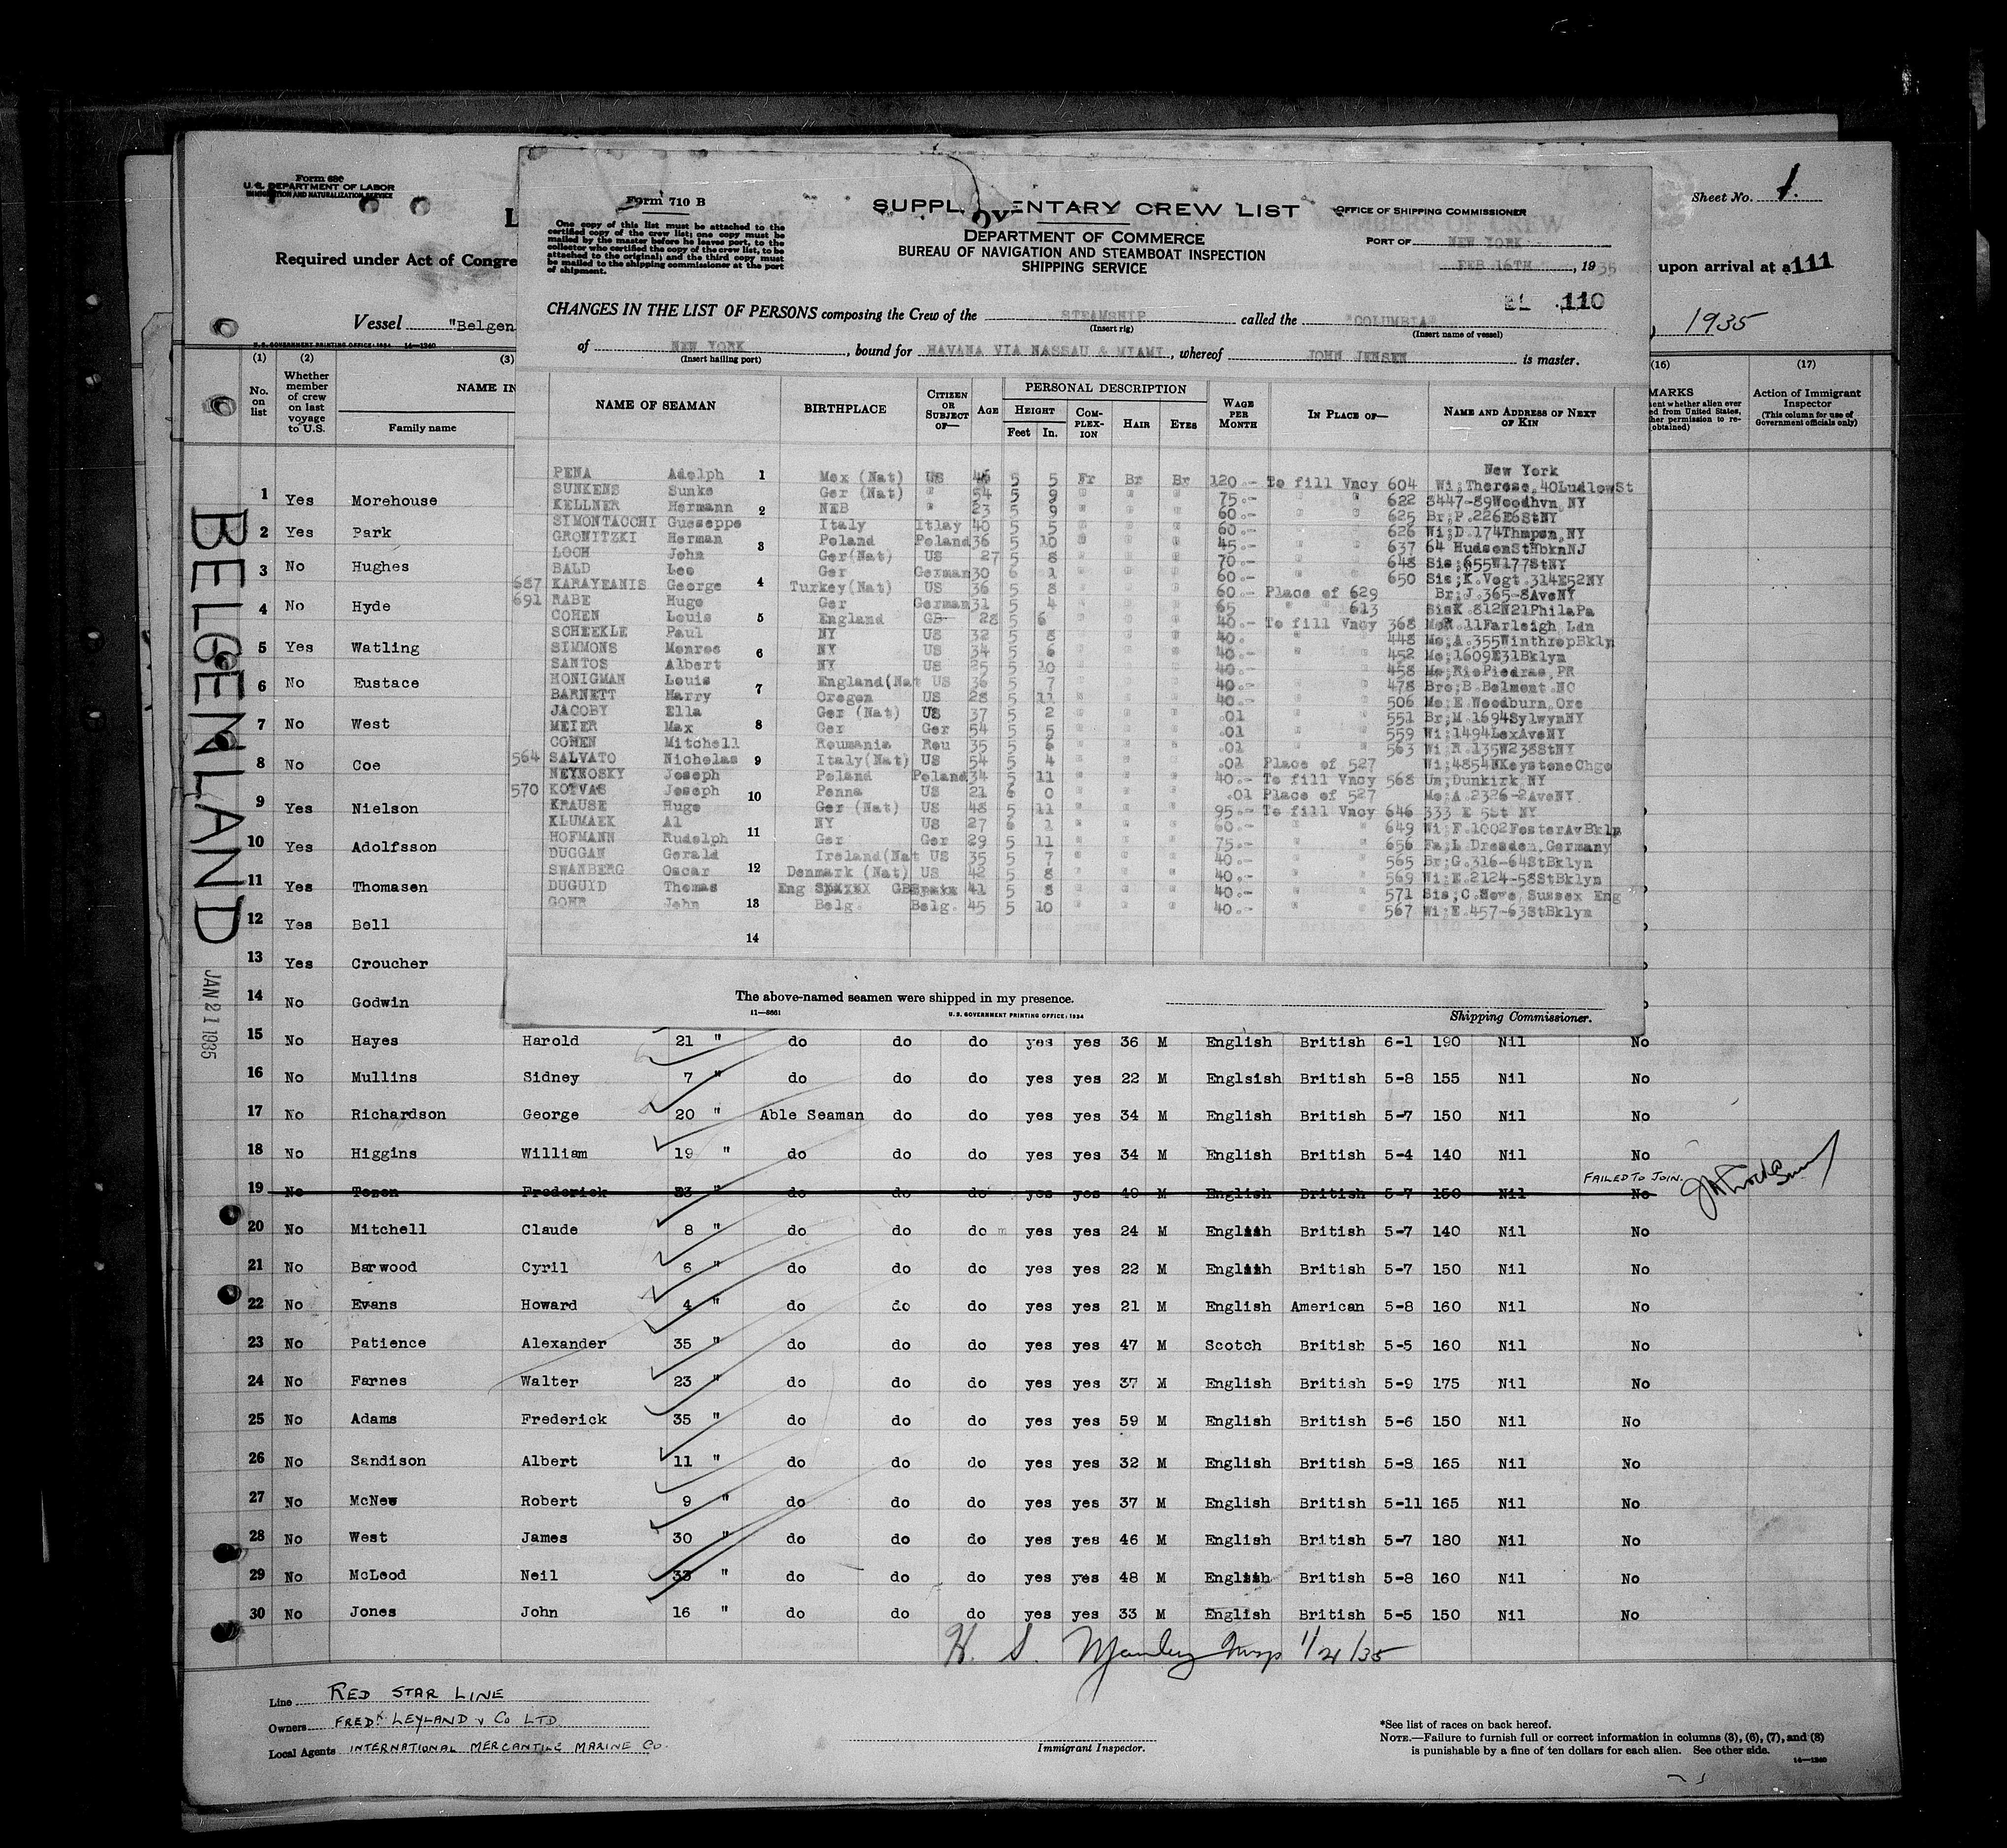 Form 680
U. S. DEPARTMENT OF LABOR
IMMIGRATION AND NATURALIZATION SERVICE
Sheet No. 1.
L
Required under Act of Congre
upon arrival at a 111
Vessel "Belgen
, 1935
U. S. GOVERNMENT PRINTING OFFICE: 1934 14—1240
Form 710 B
One copy of this list must be attached to the
certified copy of the crew list; one copy must be
mailed by the master before he leaves port, to the
collector who certified the copy of the crew list, to be
attached to the original; and the third copy must
be mailed to the shipping commissioner at the port
of shipment.
SUPPL ENTARY CREW LIST
DEPARTMENT OF COMMERCE
BUREAU OF NAVIGATION AND STEAMBOAT INSPECTION
SHIPPING SERVICE
OFFICE OF SHIPPING COMMISSIONER
PORT OF NEW YORK
FEB 16TH, 1935
110
CHANGES IN THE LIST OF PERSONS composing the Crew of the STEAMSHIP called the "COLUMBIA"
(Insert rig) (Insert name of vessel)
of NEW YORK, bound for HAVANA VIA NASSAU & MIAMI, whereof JOHN JENSEN is master.
(Insert hailing port)
NAME OF SEAMAN BIRTHPLACE CITIZEN OR SUBJECT OF— AGE PERSONAL DESCRIPTION HEIGHT Feet In. COMPLEXION HAIR EYES WAGE PER MONTH IN PLACE OF— NAME AND ADDRESS OF NEXT OF KIN
New York
PENA Adolph 1 Mex (Nat) US 46 5 5 Fr Br Br 120.- To fill Vncy 604 Wi;Therese,40LudlowSt
SUNKENS Sunke Ger (Nat) " 54 5 9 " " " 75.- " " 622 8447-89Woodhvn,NY
KELLNER Hermann 2 NEB " 23 5 9 " " " 60.- " " 625 Br;P.226E6StNY
SIMONTACCHI Gueseppe Italy Itlay 40 5 5 " " " 60.- " " 626 Wi;D.174Thmpsn,NY
GRONITZKI Herman 3 Poland Poland 36 5 10 " " " 45.- " " 637 64 HudsonStHbknNJ
LOCH John Ger(Nat) US 27 5 8 " " " 70.- " " 648 Sis;655W177StNY
BALD Leo Ger German 30 6 1 " " " 60.- " " 650 Sis;K.Vogt.314E52NY
687 KARAYEANIS George 4 Turkey(Nat) US 36 5 8 " " " 60.- Place of 629 Br;J.365-8AveNY
691 RABE Hugo Ger German 31 5 4 " " " 65 " " 613 SisK.812N21PhilaPa
COHEN Louis 5 England GB 28 5 6 " " " 40.- To fill Vncy 368 11Farleigh Ldn
SCHEEKLE Paul NY US 32 5 8 " " " 40. " " 448 Mo;A.355WinthropBkln
SIMMONS Monroe 6 NY US 34 5 6 " " " 40.- " " 452 Mo;1609E31Bklyn
SANTOS Albert NY US 25 5 10 " " " 40.- " " 458 Mo;RioPiedras,PR
HONIGMAN Louis 7 England(Nat US 36 5 7 " " " 40.- " " 478 Bro;B.Belmont.NC
BARNETT Harry Oregon US 28 5 11 " " " 40.- " " 506 Mo;E.Woodburn,Ore
JACOBY Ella Ger (Nat) US 37 5 2 " " " .01 " " 551 Br;M.1694SylwynNY
MEIER Max 8 Ger Ger 54 5 5 " " " .01 " " 559 Wi;1494LexAveNY
COHEN Mitchell Roumania Rou 35 5 6 " " " .01 " " 563 Wi;R.135W238StNY
564 SALVATO Nicholas 9 Italy(Nat) US 54 5 4 " " " .01 Place of 527 Wi;4854NKeystoneChgo
NEYNOSKY Joseph Poland Poland 34 5 11 " " " 40.- To fill Vncy 568 Un;Dunkirk NY
570 KOTVAS Joseph 10 Penna US 21 6 0 " " " .01 Place of 527 Mo;A.2326-2AveNY
KRAUSE Hugo Ger (Nat) US 48 5 11 " " " 95.- To fill Vncy 646 333 E 5St NY
KLUMAEK Al 11 NY US 27 6 1 " " " 60.- " " 649 Wi;F.1002FosterAvBkln
HOFMANN Rudolph Ger Ger 29 5 11 " " " 75.- " " 656 Fa;L Dresden,Germany
DUGGAN Gerald Ireland(Nat US 35 5 7 " " " 40.- " " 565 Br;G.316-64StBklyn
SWANBERG Oscar 12 Denmark (Nat) US 42 5 8 " " " 40.- " " 569 Wi;E.2124-58StBklyn
DUGUID Thomas Eng GB 41 5 8 " " " 40.- " " 571 Sis;C.Hove,Sussex Eng
GOHR John 13 Belg. Belg. 45 5 10 " " " 40.- " " 567 Wi;E.457-63StBklyn
14
The above-named seamen were shipped in my presence.
11—8661 U. S. GOVERNMENT PRINTING OFFICE: 1934 Shipping Commissioner.
(1) (2) (3) (16) (17)
No. on list Whether member of crew on last voyage to U.S. NAME IN Family name
MARKS
Action of Immigrant Inspector
(This column for use of Government officials only)
BELGENLAND
JAN 21 1935
1 Yes Morehouse
2 Yes Park
3 No Hughes
4 No Hyde
5 Yes Watling
6 No Eustace
7 No West
8 No Coe
9 Yes Nielson
10 Yes Adolfsson
11 Yes Thomasen
12 Yes Bell
13 Yes Croucher
14 No Godwin
15 No Hayes Harold 21 " do do do yes yes 36 M English British 6-1 190 Nil No
16 No Mullins Sidney 7 " do do do yes yes 22 M Englsish British 5-8 155 Nil No
17 No Richardson George 20 " Able Seaman do do yes yes 34 M English British 5-7 150 Nil No
18 No Higgins William 19 " do do do yes yes 34 M English British 5-4 140 Nil No
FAILED TO JOIN.
19 No Tozon Frederick 23 " do do do yes yes 49 M English British 5-7 150 Nil No
20 No Mitchell Claude 8 " do do do yes yes 24 M English British 5-7 140 Nil No
21 No Barwood Cyril 6 " do do do yes yes 22 M English British 5-7 150 Nil No
22 No Evans Howard 4 " do do do yes yes 21 M English American 5-8 160 Nil No
23 No Patience Alexander 35 " do do do yes yes 47 M Scotch British 5-5 160 Nil No
24 No Farnes Walter 23 " do do do yes yes 37 M English British 5-9 175 Nil No
25 No Adams Frederick 35 " do do do yes yes 59 M English British 5-6 150 Nil No
26 No Sandison Albert 11 " do do do yes yes 32 M English British 5-8 165 Nil No
27 No McNew Robert 9 " do do do yes yes 37 M English British 5-11 165 Nil No
28 No West James 30 " do do do yes yes 46 M English British 5-7 180 Nil No
29 No McLeod Neil 33 " do do do yes yes 48 M English British 5-8 160 Nil No
30 No Jones John 16 " do do do yes yes 33 M English British 5-5 150 Nil No
H. S. Manley Insp 1/21/35
Line RED STAR LINE
Owners FREDK LEYLAND & CO LTD.
Local Agents INTERNATIONAL MERCANTILE MARINE CO.
Immigrant Inspector.
*See list of races on back hereof.
NOTE.—Failure to furnish full or correct information in columns (3), (6), (7), and (8)
is punishable by a fine of ten dollars for each alien. See other side.
14—1240